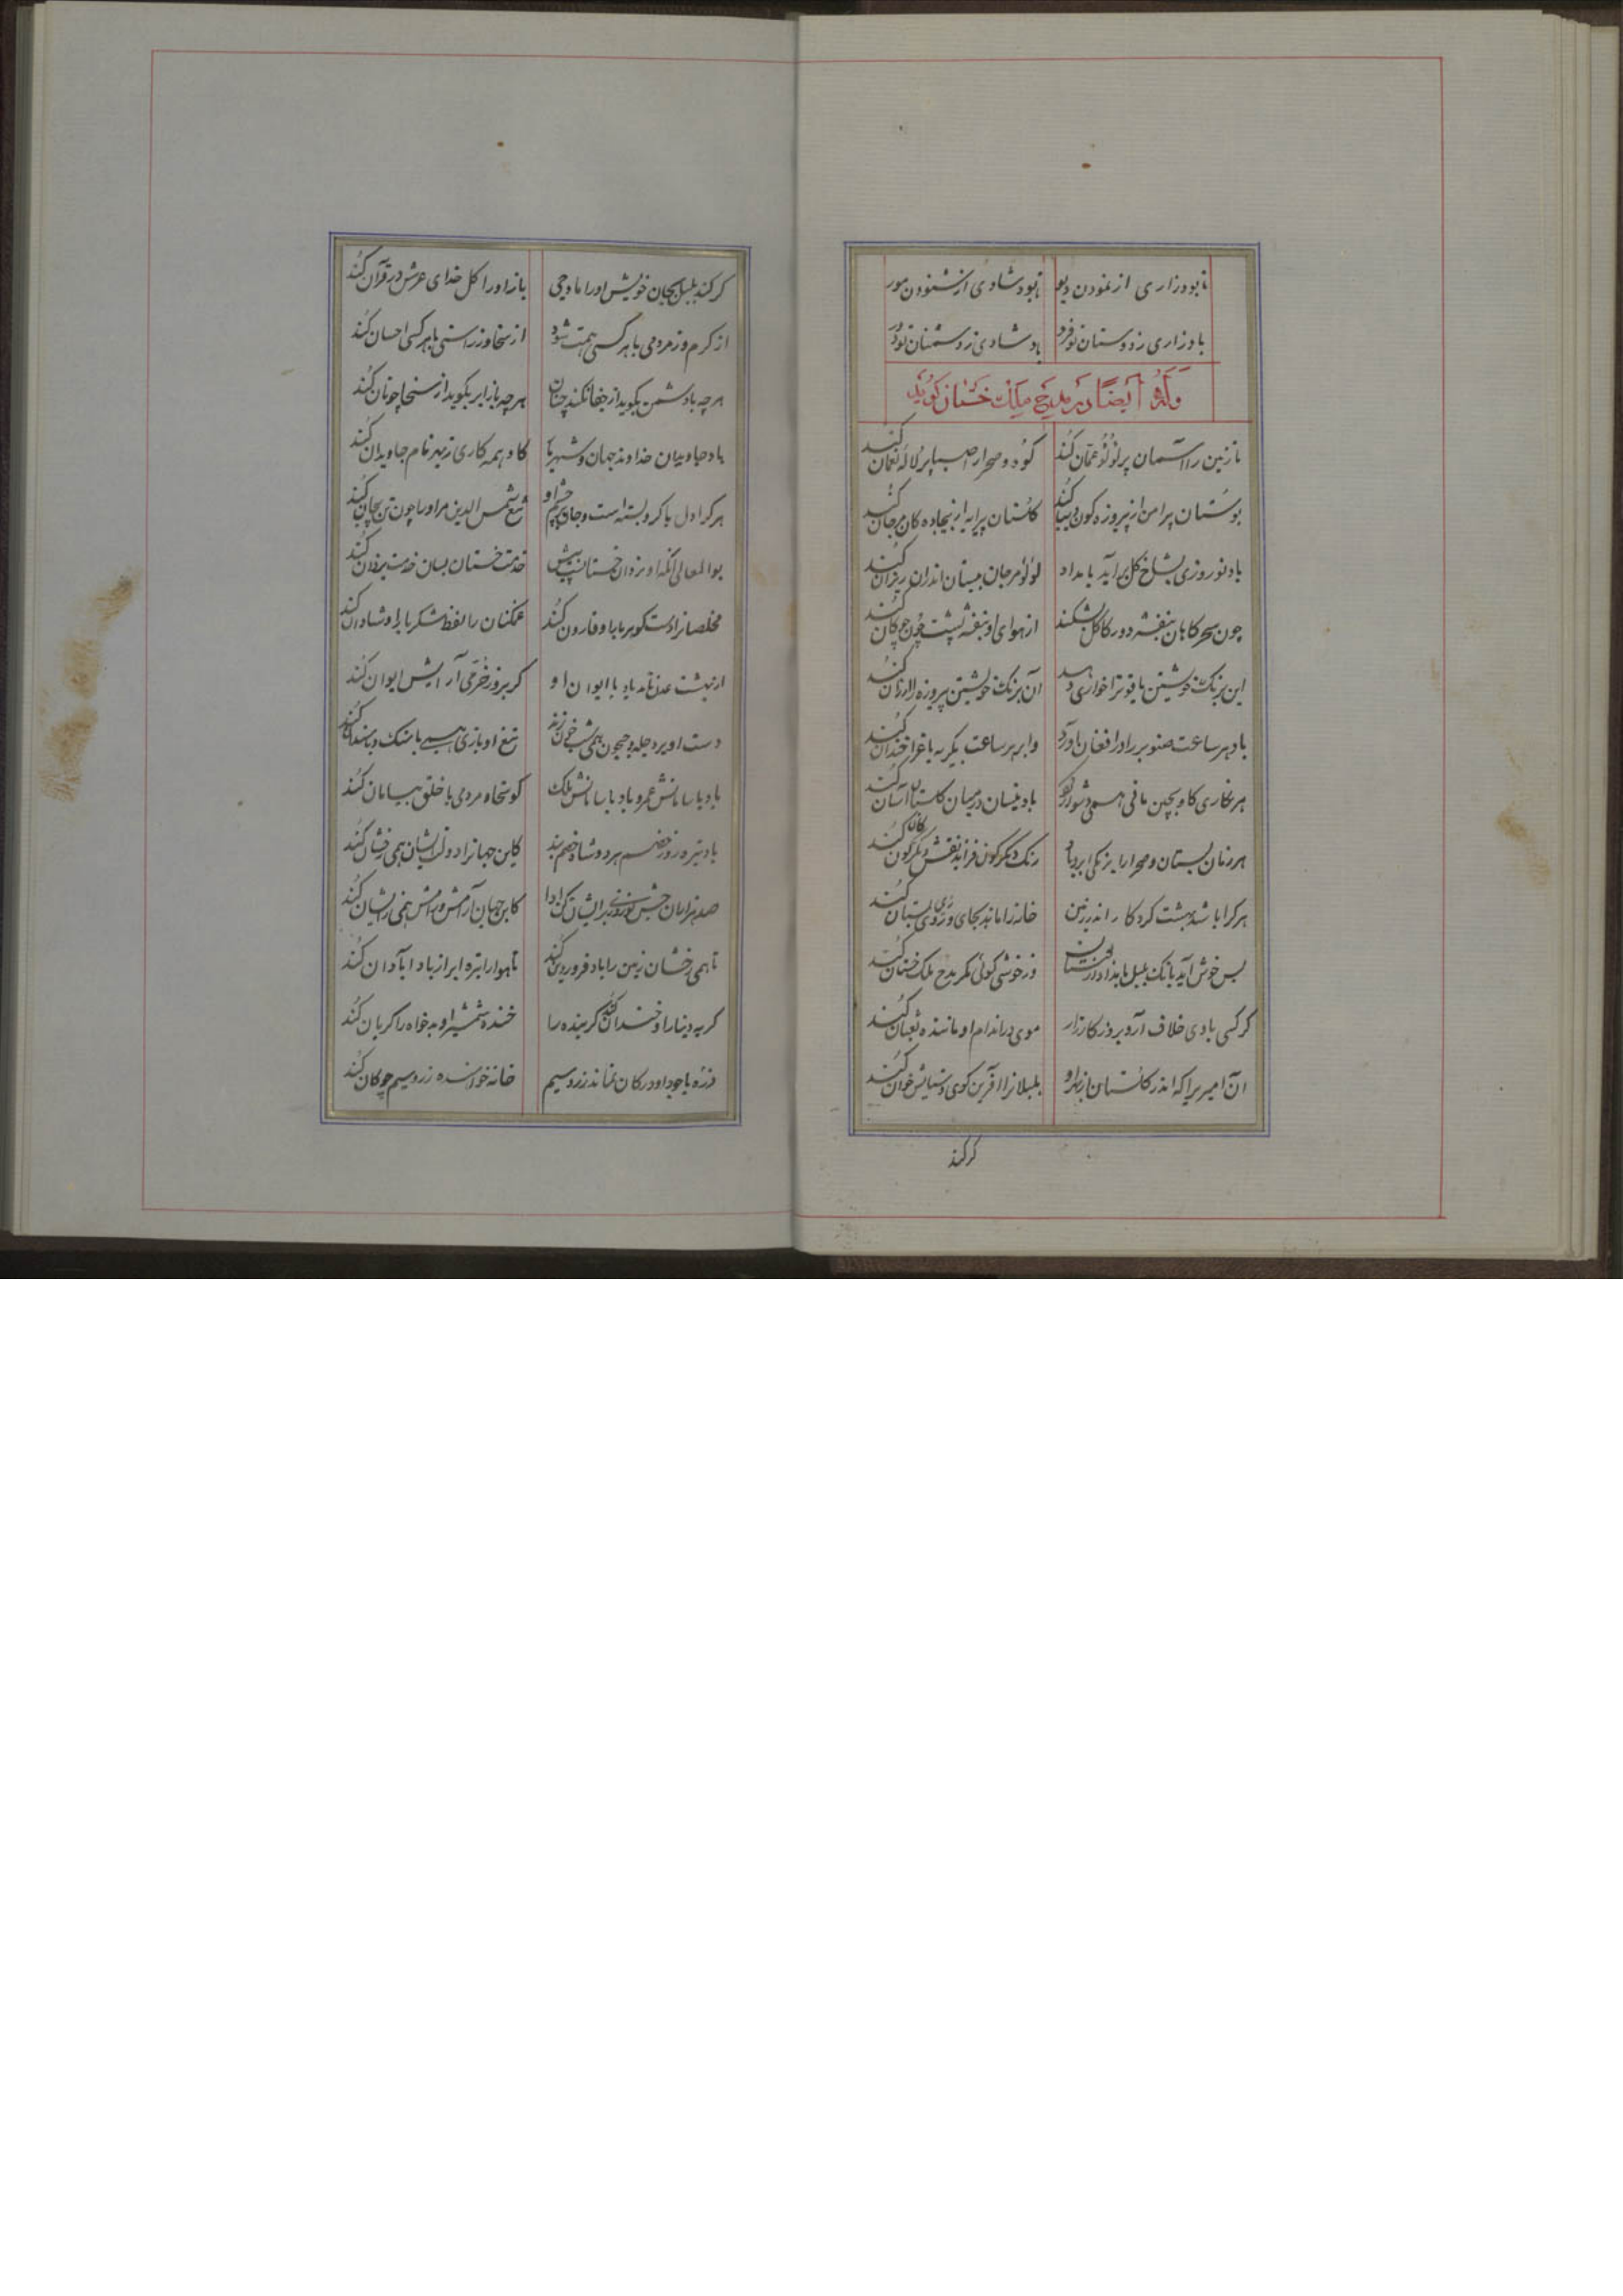 تا بود زاری از غنودن دیو تا بود شادی از شنودن مور
باد زاری ز دوستان تو فرد باد شادی ز دشمنان تو دور
وله ایضا در مدح ملک خستان کوید
تا زمین را آسمان پر لؤلؤ عمان کند کوه و صحرا را صبا پر لاله نعمان کند
بوستان پیرامن از پیروزه کون دیبا کند کلستان پیرایه از بیجاده و مرجان کند
باد نوروزی بشاخ کل برآید بامداد لؤلؤ مرجان میان اندران ریزان کند
چون سحرکاهان بنفشه دور کل بشکند از هوای او بنفشه پشت چون چوکان کند
این برنک خویشتن یاقوت را خواری دهد آن برنک خویشتن پیروزه را ارزان کند
باد هر ساعت صنوبر را در افغان آورد وابر هر ساعت بکرید باغ را خندان کند
هر نکاری کاو بچین مانی همی دشوار کرد باد نیسان در میان کلستان آسان کند
هر زمان بستان و صحرا را برنکی ابر و باد رنک دیکرکون فزاید نقش دیکرکون کند
هر کرا باشد بهشت کردکار اندر زمین خانه را ماند بجای و روی زی بستان کند
بس خوش آید بانک بلبل بامداد از بوستان وز خوشی کوئی مکر مدح ملک خستان کند
کر کسی با وی خلاف آرد بروز کارزار موی در اندام او ماننده ثعبان کند
آن امیریرا که اندر کلستان از بهر او بلبلانرا آفرین کوی و ستایش خوان کند
کر کند
کر کند بلبل بجان خویش او را مادحی باز او را کل خدای عرش در قرآن کند
از کرم وز مردمی با هر کسی همت شود از سخا وز راستی با هر کسی احسان کند
هر چه با دشمن بکوید از جفا نکند چنان هر چه با زایر بکوید از سخا چونان کند
باد جاویدان خداوند جهان و شهریار کاو همه کاری ز بهر نام جاویدان کند
هر کرا دل با کرو بسته است و جان و چشم او تیغ شمس الدین مر او را چون تن بیجان کند
بو المعالی آنکه او یزدان خستان پیش خدمت خستان بسان خدمت یزدان کند
مخلصانرا دست کوهربار او قارون کند غمکنان را لفظ شکربار او شادان کند
از بهشت عدن نامد یاد با ایوان او کر بروز خرمی آرایش ایوان کند
دست او بر دجله و جیحون همی شبخون زند تیغ او بازی همی با سنک و با سندان کند
باد با سامانش عمر و باد با سامانش ملک کو سخا و مردمی با خلق بی سامان کند
باد تیره روز خصم هر دو شاد و خصم بند کاین جهانرا دولت ایشان همی رخشان کند
صد هزاران جشن نوروزی بر ایشان کن ادا کاین جهان آرامش و رامش همی زیشان کند
تا همی رخشان زمین را باد فروردین کند تا هوا را تیره ابر از باد آبادان کند
کریه دینار او خندان کند کرینده را خنده شمشیر او بدخواه را کریان کند
ذره با جود او در کان نماند زر و سیم خانه خواهنده ز زر و سیم چو کان کند